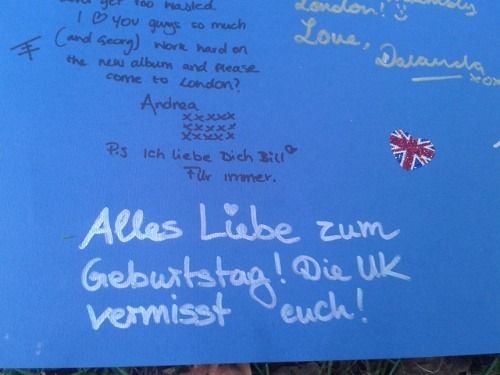 get too wasted.
I ♡ you guys so much
(and Georg) work hard on
the new album and please
come to London?
Andrea
xxxxx
xxxxx
xxxxx
P.S Ich liebe Dich Bill
Für immer.
London!
Love,
xox
Alles Liebe zum
Geburtstag! Die UK
vermisst euch!